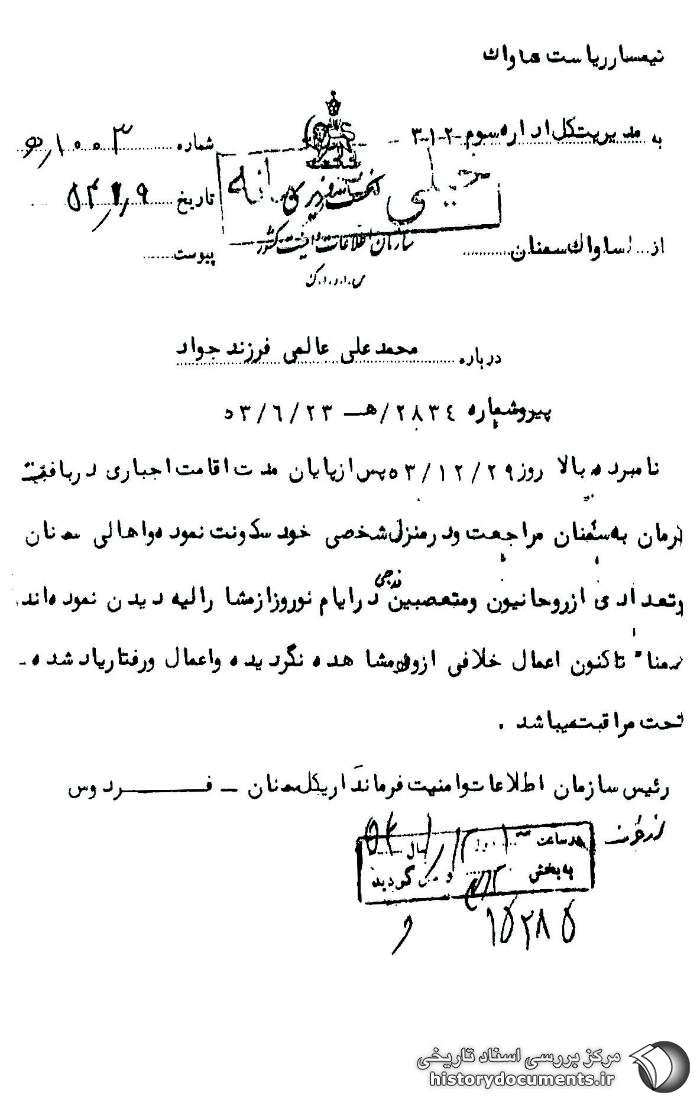 تیمسار ریاست ساواک
به مدیریت کل اداره سوم ۲-۱-۳
شماره ۱۰۰۳/ھ
خیلی محرمانه
نخست وزیری
تاریخ ۵۴/۱/۹
سازمان اطلاعات و امنیت کشور
از ساواک سمنان
پیوست
س.ا.و.ا.ک
درباره محمد علی عالمی فرزند جواد
پیرو شماره ۲۸۳۴/هـ - ۵۳/۶/۲۳
نامبرده بالا روز ۵۳/۱۲/۲۹ پس از پایان مدت اقامت اجباری دربافت
کرمان به سمنان مراجعت و در منزل شخصی خود سکونت نموده و اهالی سمنان
و تعدادی از روحانیون و متعصبین مذهبی در ایام نوروز از مشارالیه دیدن نموده‌اند.
ضمنا" تاکنون اعمال خلافی از وی مشاهده نگردیده و اعمال و رفتار یاد شده -
تحت مراقبت میباشد .
رئیس سازمان اطلاعات و امنیت فرمانداریکل سمنان - فــــردوس
از طرف
در ساعت روز سال ۵۴
به بخش و گردید
۱۵۲۸۵
مرکز بررسی اسناد تاریخی
historydocuments.ir